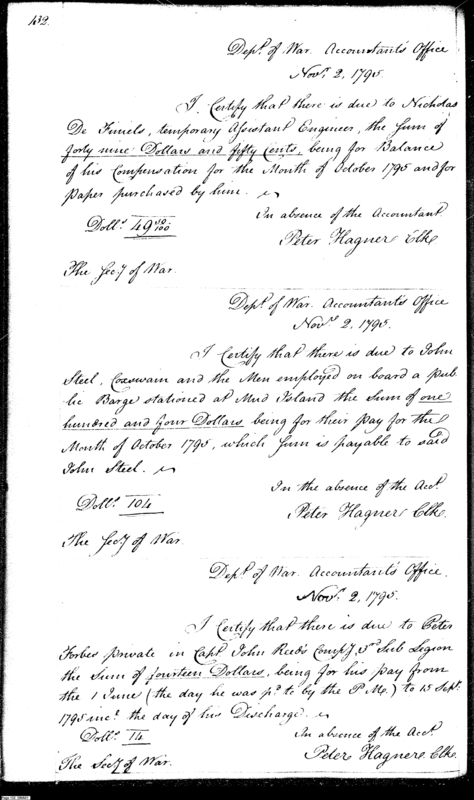 432.
Dept. of War. Accountant's Office
Novr. 2, 1795.
I Certify that there is due to Nicholas
De Finiels, temporary Assistant Engineer, the Sum of
forty nine Dollars and fifty Cents, being for Balance
of his Compensation for the Month of October 1795 and for
paper purchased by him.
In absence of the Accountant
Dolls. 49 50/100
Peter Hagner Clke
The Secy of War.
Dept. of War. Accountant's Office
Novr. 2, 1795.
I Certify that there is due to John
Steel, Coxswain and the Men employed on board a pub
lic Barge stationed at Mud Island the Sum of one
hundred and four Dollars being for their pay for the
Month of October 1795, which Sum is payable to said
John Steel.
In the absence of the Acct.
Dolls. 104
Peter Hagner Clke.
The Secy of War.
Dept. of War. Accountant's Office.
Novr. 2, 1795.
I Certify that there is due to Peter
Forbes private in Capt. John Reeds Compy. 3rd Sub Legion
the Sum of fourteen Dollars, being for his pay from
the 1 June (the day he was pd. to by the P Mr.) to 15 Sept.
1795 incl. the day of his Discharge.
In absence of the Acct.
Dolls. 14
Peter Hagner Clke.
The Secy of War.